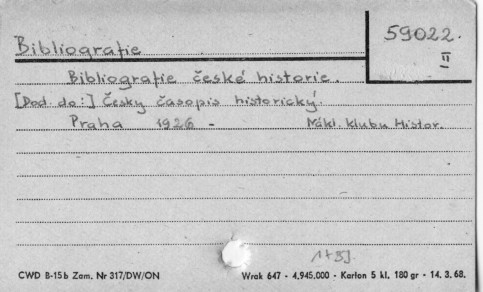 59022.
II
Bibliografie
Bibliografie české historie.
[Dod. do:] Česky časopis historický.
Praha 1926 - Nákl. klubu Histor.
CWD B-15b Zam. Nr 317/DW/ON Wrak 647 - 4,945.000 - Karton 5 kl. 180 gr - 14. 3. 68.